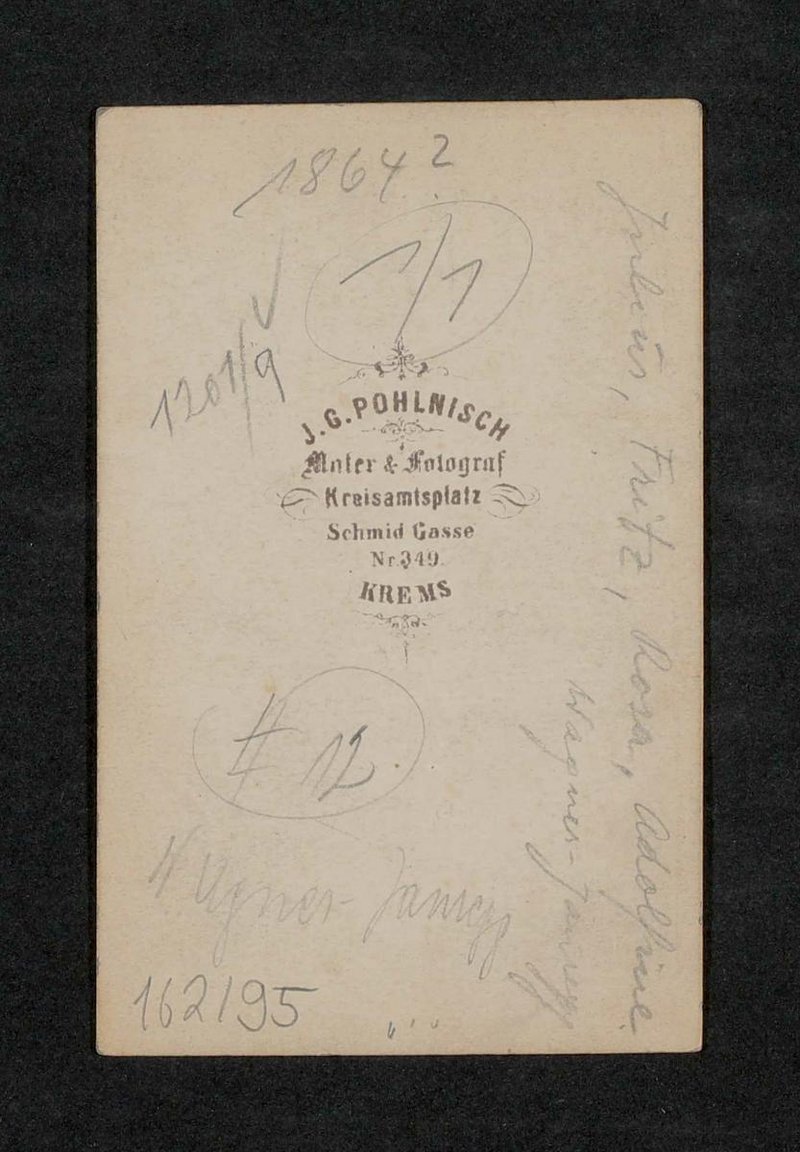 1864²
1/1
1201/9
J. G. POHLNISCH
Maler & Fotograf
Kreisamtsplatz
Schmid Gasse
Nr. 349.
KREMS
# 12
Wagner-Jauregg
162195
Julius, Fritz, Rosa, Adolfine
Wagner-Jauregg